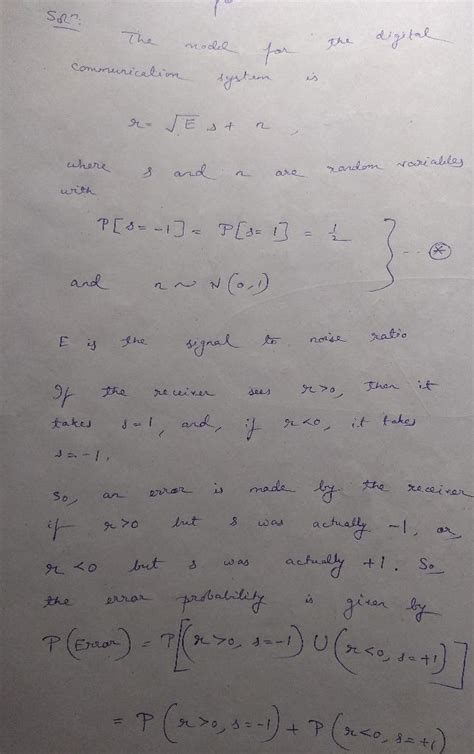 Solⁿ:
The model for the digital
communication system is
r = √E s + n ,
where s and n are random variables
with
P[s = -1] = P[s = 1] = 1/2
... ⊛
and n ~ N(0,1)
E is the signal to noise ratio
If the receiver sees r>0, then it
takes s=1, and, if r<0, it takes
s=-1.
So, an error is made by the receiver
if r>0 but s was actually -1, or,
r<0 but s was actually +1. So
the error probability is given by
P(Error) = P[(r>0, s=-1) ∪ (r<0, s=+1)]
= P(r>0, s=-1) + P(r<0, s=+1)